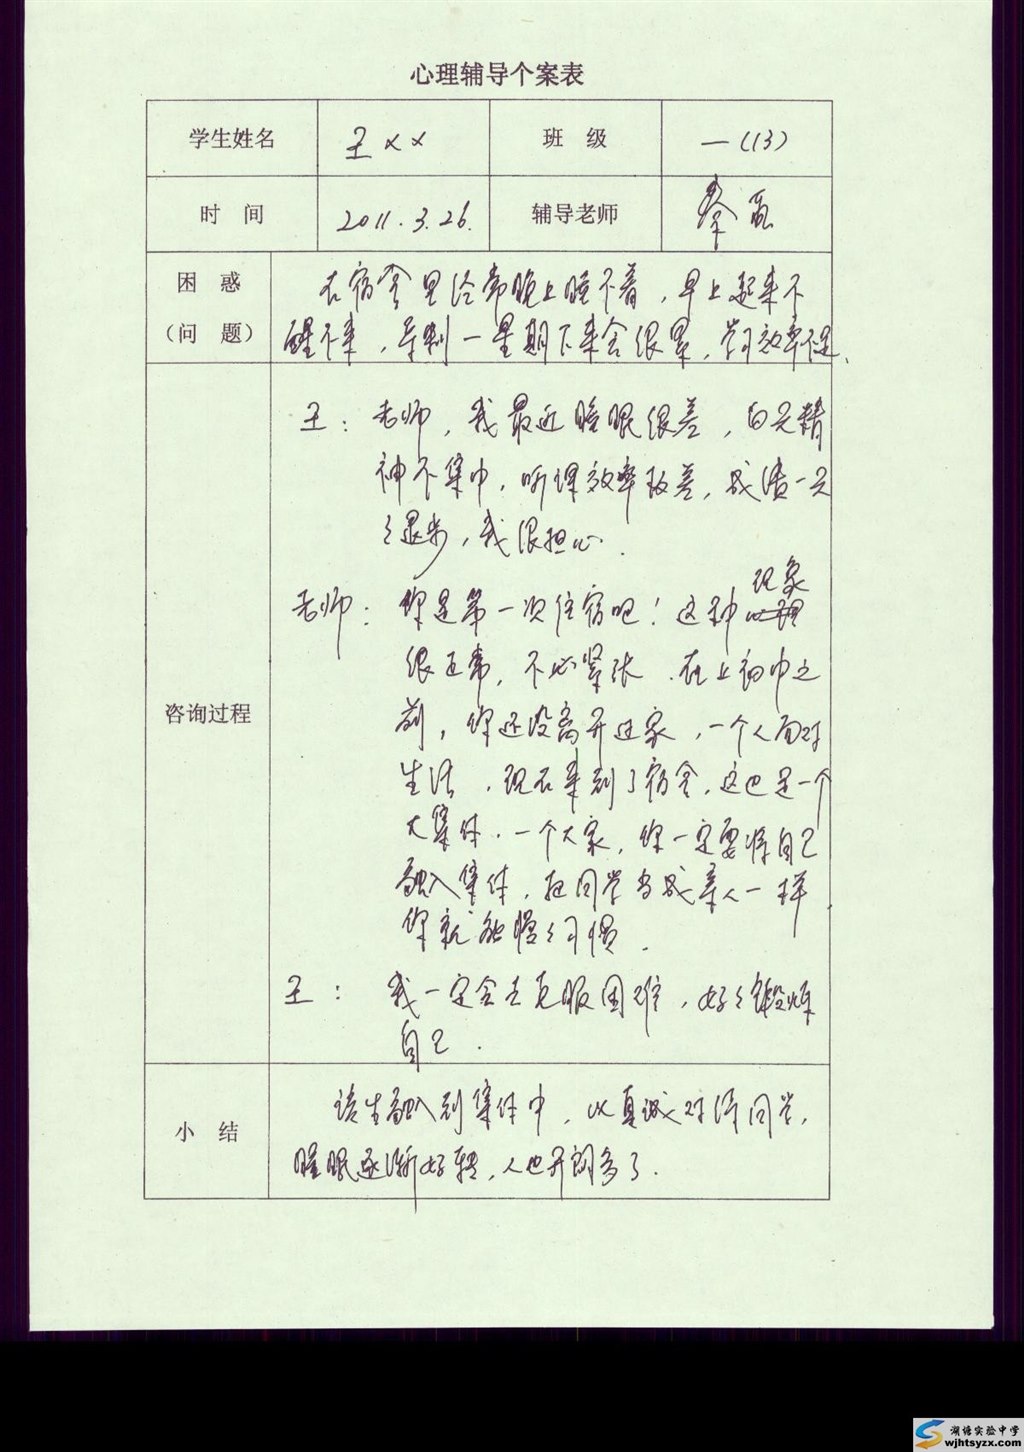 心理辅导个案表
学生姓名 王×× 班 级 一(13)
时 间 2011.3.26. 辅导老师 秦
困 惑 在宿舍里经常晚上睡不着，早上起来不
（问 题） 醒不来，导制一星期下来会很累，学习效率慢．
王：老师，我最近睡眠很差，白天精
神不集中，听课效率极差，成绩一天
天退步，我很担心．
现象
老师：你是第一次住宿吧！这种心理
很正常，不必紧张．在上初中之
前，你还没离开过家，一个人面对
咨询过程
生活，现在来到了宿舍，这也是一个
大集体．一个大家，你一定要将自己
融入集体，把同学当成亲人一样
你就能慢慢习惯．
王：我一定会去克服困难，好好锻炼
自己．
小 结
该生融入到集体中，以真诚对待同学，
睡眠逐渐好转，人也开朗多了．
湖塘实验中学
wjhtsyzx.com